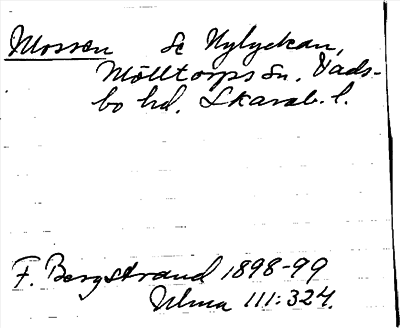 Mossen Se Nylyckan,
Mölltorps Sn. Vads-
bo hd. Skarab. l.
F. Bergstrand 1898-99
Ulma 111:324.